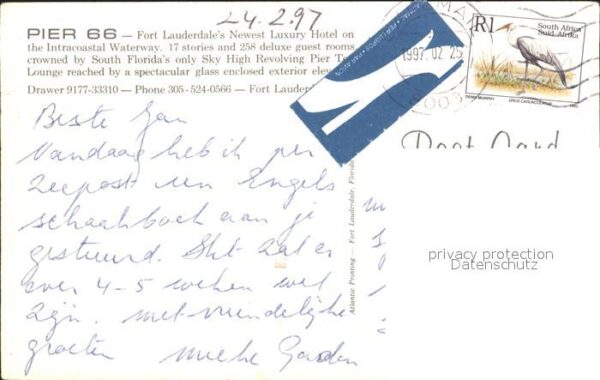 24.2.97
PIER 66 — Fort Lauderdale's Newest Luxury Hotel on
the Intracoastal Waterway. 17 stories and 258 deluxe guest rooms
crowned by South Florida's only Sky High Revolving Pier T
Lounge reached by a spectacular glass enclosed exterior elev
Drawer 9177-33310 — Phone 305-524-0566 — Fort Laud
1997.02.25
R1
South Africa
Suid-Afrika
Post Card
Beste Jan
Vandaag heb ik per
Zeepost een Engels
schaakboek aan je
gestuurd. Het zal er
over 4-5 weken wel
zijn. met vriendelijke
groeten Mieke
Atlantic Printing — Fort Lauderdale, Florida
privacy protection
Datenschutz